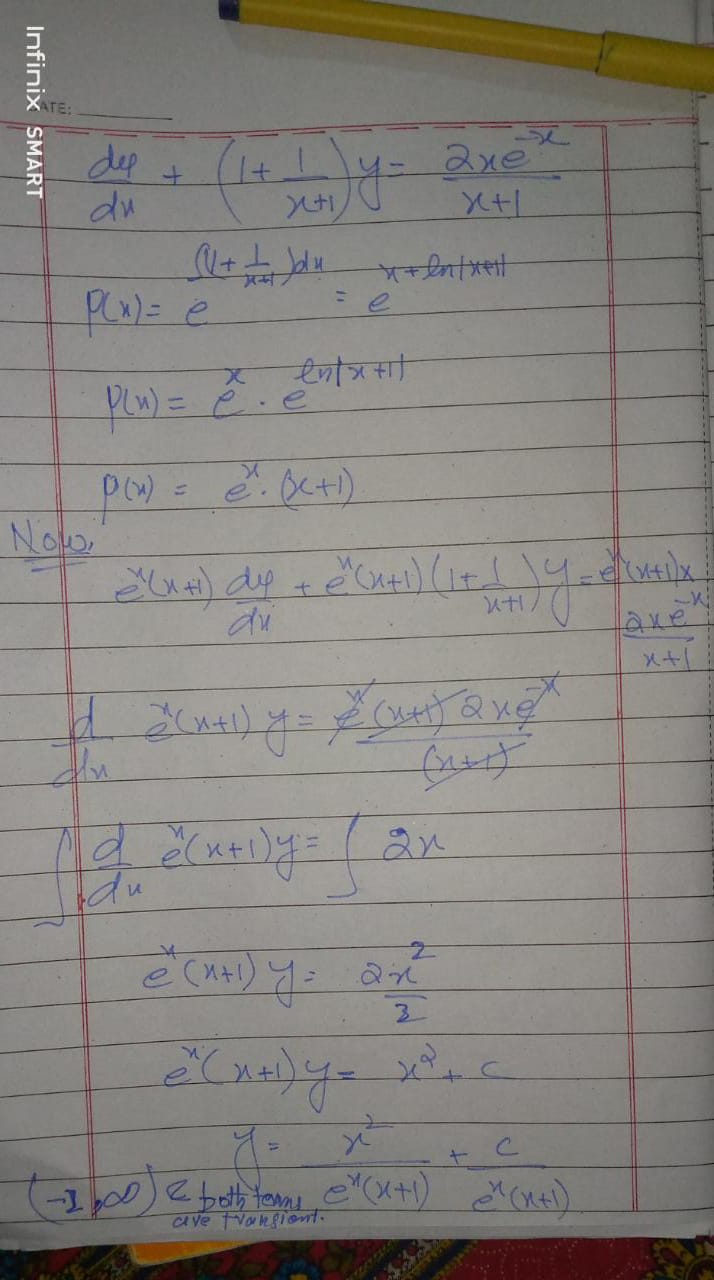 Infinix SMART
DATE:
dy/dx + (1 + 1/(x+1)) y = 2xe^-x/(x+1)
P(x) = e^∫(1 + 1/(x+1))dx = e^x+ln|x+1|
P(x) = e^x . e^ln|x+1|
P(x) = e^x . (x+1)
Now,
e^x(x+1) dy/dx + e^x(x+1)(1 + 1/(x+1)) y = e^x(x+1) x 2xe^-x/(x+1)
d/dx e^x(x+1) y = e^x(x+1) 2xe^-x/(x+1)
∫ d/dx e^x(x+1)y = ∫ 2x
e^x(x+1) y = 2x^2/2
e^x(x+1)y = x^2 + c
y = x^2/(e^x(x+1)) + c/(e^x(x+1))
(-1, ∞) & both terms
are transient.